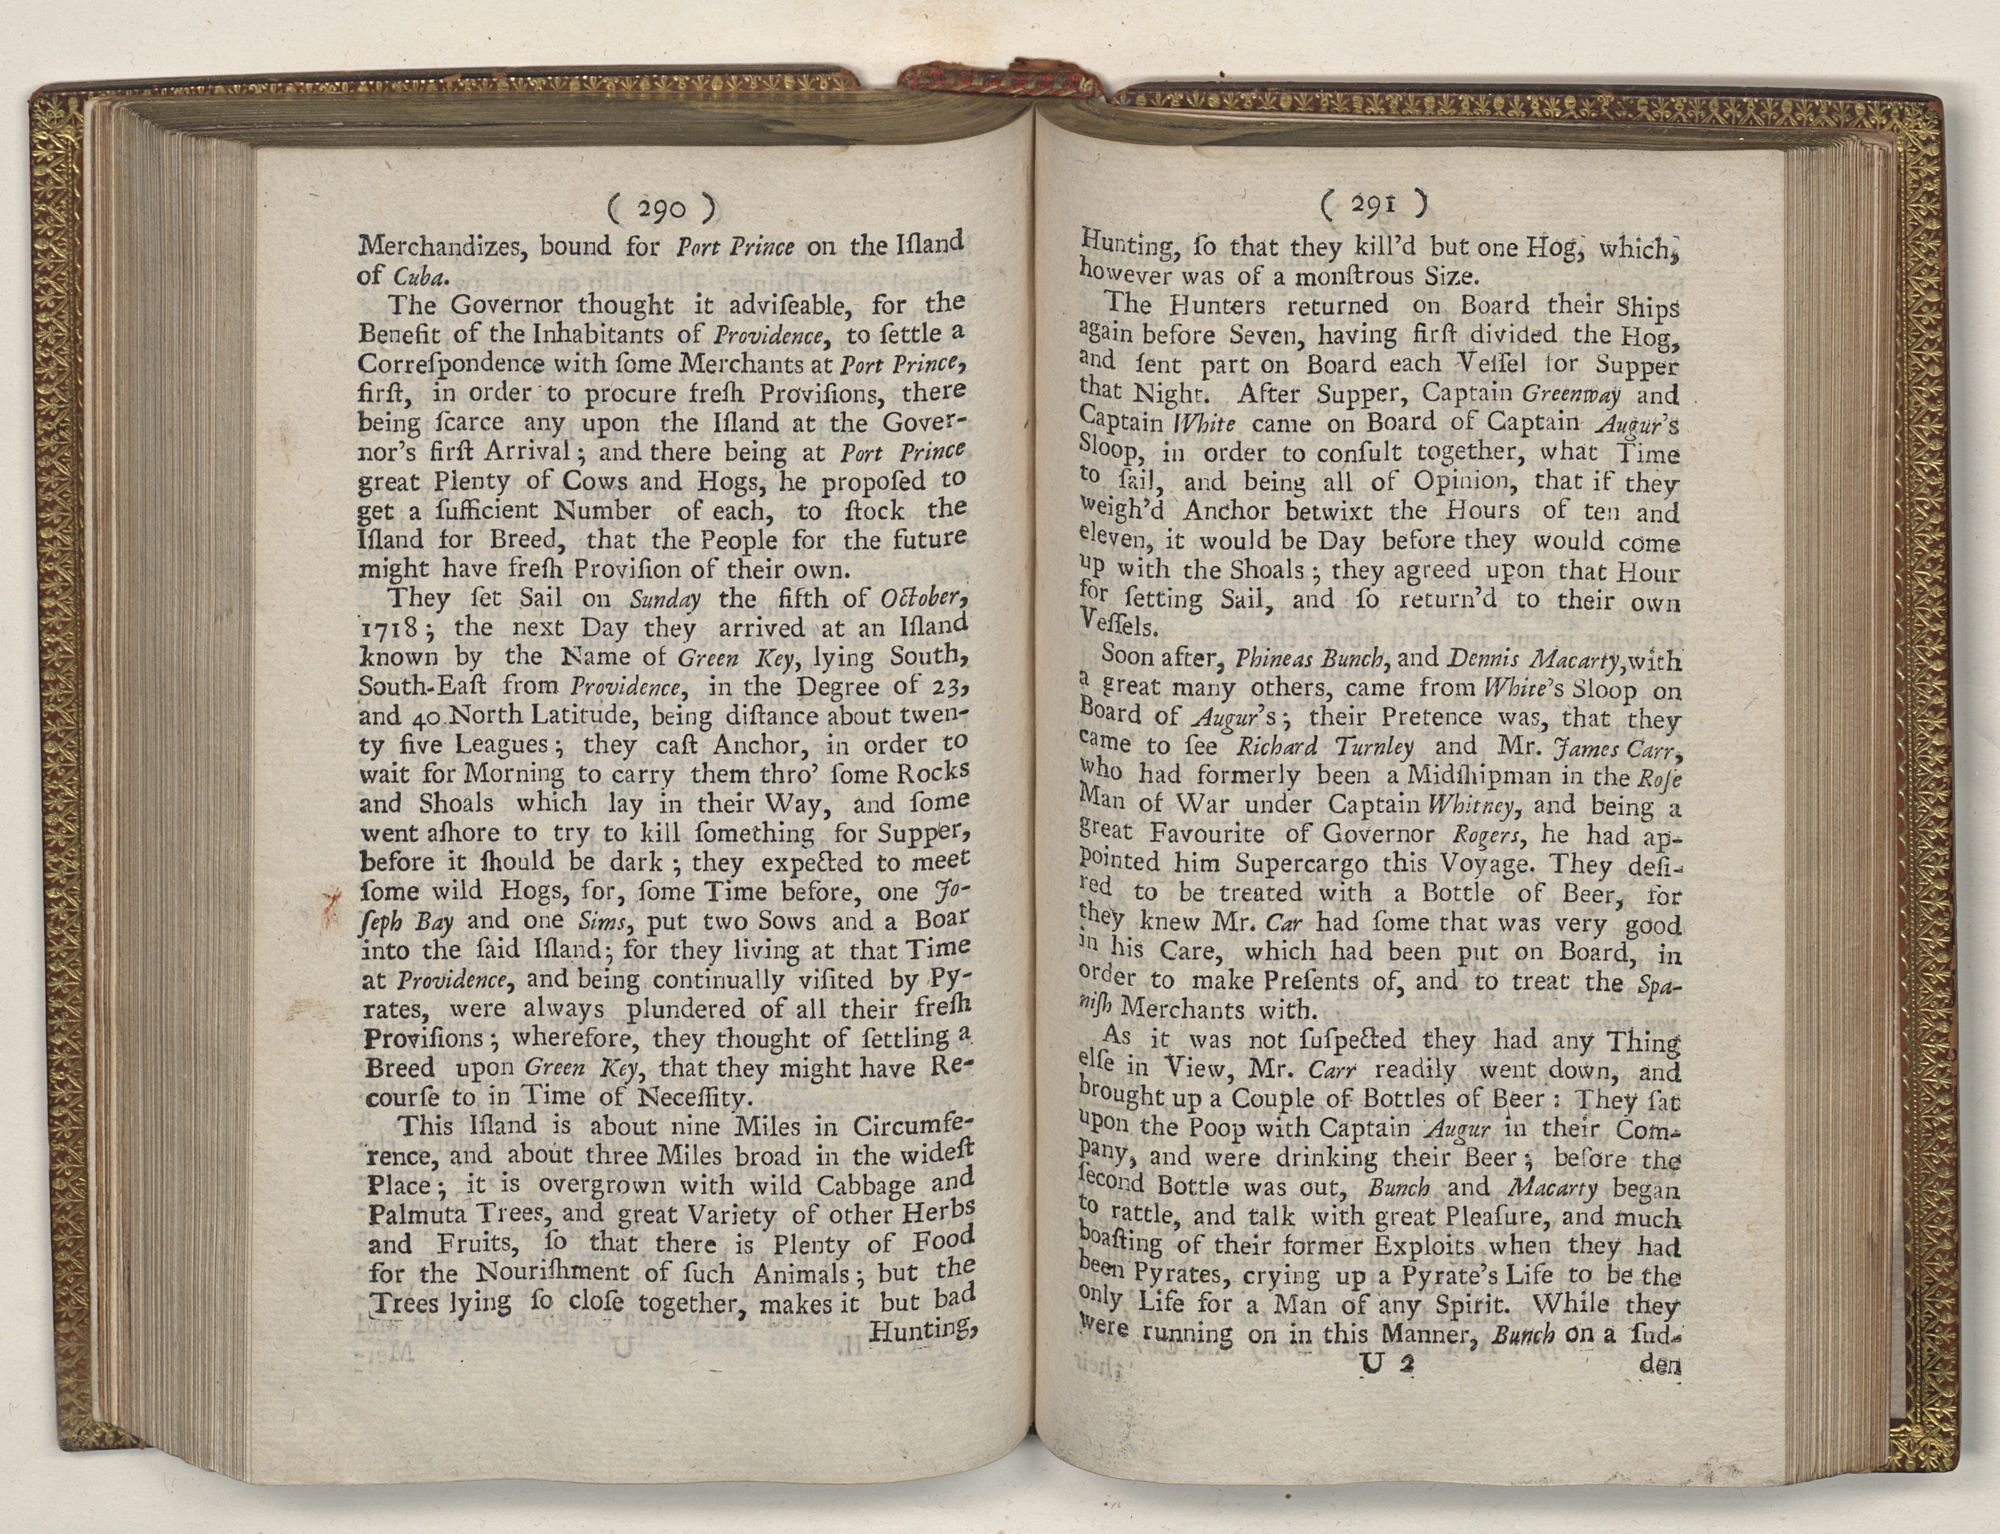 ( 290 )
Merchandizes, bound for Port Prince on the Iſland
of Cuba.
The Governor thought it adviſeable, for the
Benefit of the Inhabitants of Providence, to ſettle a
Correſpondence with ſome Merchants at Port Prince,
firſt, in order to procure freſh Proviſions, there
being ſcarce any upon the Iſland at the Gover-
nor's firſt Arrival; and there being at Port Prince
great Plenty of Cows and Hogs, he propoſed to
get a ſufficient Number of each, to ſtock the
Iſland for Breed, that the People for the future
might have freſh Proviſion of their own.
They ſet Sail on Sunday the fifth of October,
1718; the next Day they arrived at an Iſland
known by the Name of Green Key, lying South,
South-Eaſt from Providence, in the Degree of 23,
and 40 North Latitude, being diſtance about twen-
ty five Leagues; they caſt Anchor, in order to
wait for Morning to carry them thro' ſome Rocks
and Shoals which lay in their Way, and ſome
went aſhore to try to kill ſomething for Supper,
before it ſhould be dark; they expected to meet
ſome wild Hogs, for, ſome Time before, one Jo-
ſeph Bay and one Sims, put two Sows and a Boar
into the ſaid Iſland; for they living at that Time
at Providence, and being continually viſited by Py-
rates, were always plundered of all their freſh
Proviſions; wherefore, they thought of ſettling a
Breed upon Green Key, that they might have Re-
courſe to in Time of Neceſſity.
This Iſland is about nine Miles in Circumfe-
rence, and about three Miles broad in the wideſt
Place; it is overgrown with wild Cabbage and
Palmuta Trees, and great Variety of other Herbs
and Fruits, ſo that there is Plenty of Food
for the Nouriſhment of ſuch Animals; but the
Trees lying ſo cloſe together, makes it but bad
Hunting,
( 291 )
Hunting, ſo that they kill'd but one Hog, which,
however was of a monſtrous Size.
The Hunters returned on Board their Ships
again before Seven, having firſt divided the Hog,
and ſent part on Board each Veſſel for Supper
that Night. After Supper, Captain Greenway and
Captain White came on Board of Captain Augur's
Sloop, in order to conſult together, what Time
to ſail, and being all of Opinion, that if they
weigh'd Anchor betwixt the Hours of ten and
eleven, it would be Day before they would come
up with the Shoals; they agreed upon that Hour
for ſetting Sail, and ſo return'd to their own
Veſſels.
Soon after, Phineas Bunch, and Dennis Macarty, with
a great many others, came from White's Sloop on
Board of Augur's; their Pretence was, that they
came to ſee Richard Turnley and Mr. James Carr,
who had formerly been a Midſhipman in the Roſe
Man of War under Captain Whitney, and being a
great Favourite of Governor Rogers, he had ap-
pointed him Supercargo this Voyage. They deſi-
red to be treated with a Bottle of Beer, for
they knew Mr. Car had ſome that was very good
in his Care, which had been put on Board, in
order to make Preſents of, and to treat the Spa-
niſh Merchants with.
As it was not ſuſpected they had any Thing
elſe in View, Mr. Carr readily went down, and
brought up a Couple of Bottles of Beer: They ſat
upon the Poop with Captain Augur in their Com-
pany, and were drinking their Beer; before the
ſecond Bottle was out, Bunch and Macarty began
to rattle, and talk with great Pleaſure, and much
boaſting of their former Exploits when they had
been Pyrates, crying up a Pyrate's Life to be the
only Life for a Man of any Spirit. While they
were running on in this Manner, Bunch on a ſud-
U 2 den